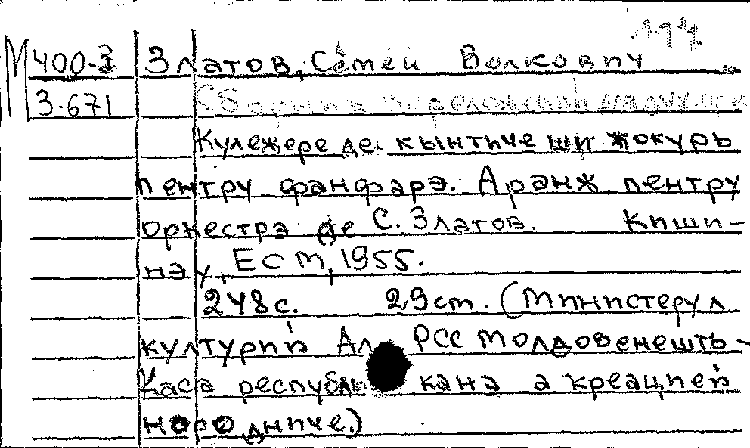 194
М 400-3 Златов, Семей Волкович
3-671
Кулежере де кынтиче ши жокурь
пентру фанфарэ. Аранж пентру
оркестра де С. Златов. Киши-
нэу, ЕСМ, 1955.
248 с. 29 cm. (Министерул
културий Ал РСС Молдовенешть-
Каса республикана а креацией
нородниче)